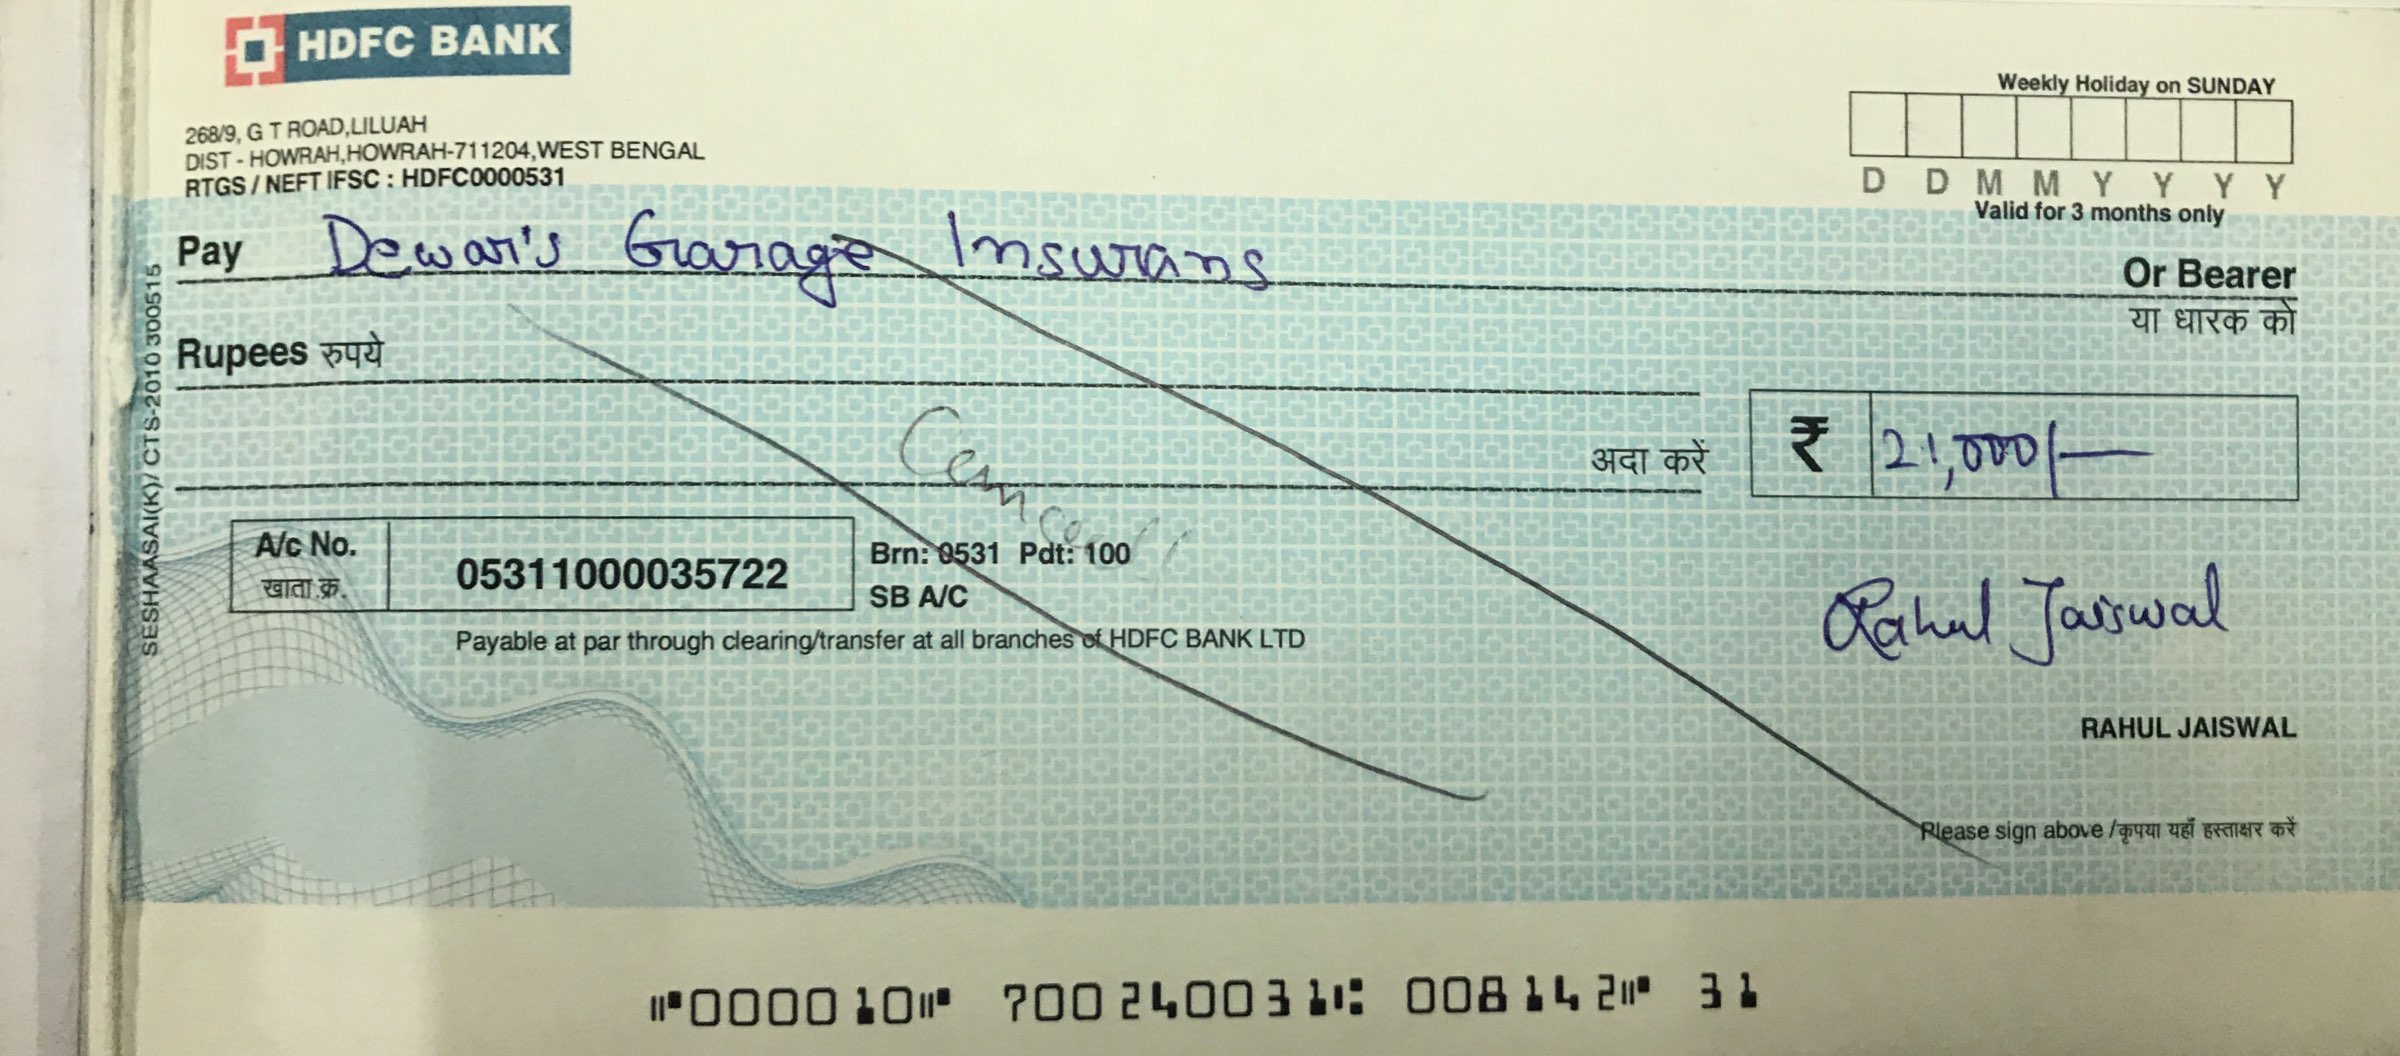 HDFC BANK
268/9, G T ROAD,LILUAH
DIST - HOWRAH,HOWRAH-711204,WEST BENGAL
RTGS / NEFT IFSC : HDFC0000531
Weekly Holiday on SUNDAY
D D M M Y Y Y Y
Valid for 3 months only
Pay Dewar's Garage Insurans Or Bearer
या धारक को
Rupees रुपये
अदा करें ₹ 21,000/-
A/c No.
खाता.क्र.
05311000035722
Brn: 0531 Pdt: 100
SB A/C
Payable at par through clearing/transfer at all branches of HDFC BANK LTD
Rahul Jaiswal
RAHUL JAISWAL
Please sign above /कृपया यहाँ हस्ताक्षर करें
SESHAASAI(K)/ CTS-2010 300515
⑈000010⑈ 700240031⑆ 008142⑈ 31